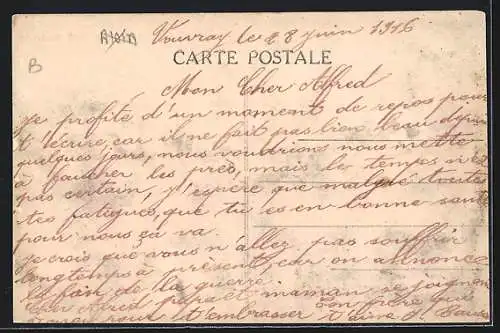 Vouvray le 28 juin 1916
CARTE POSTALE
B
Mon Cher Alfred
Je profite d'un moment de repos pour
t'écrire, car il ne fait pas bien beau depuis
quelques jours, nous voudrions nous mettre
à faucher les prés, mais le temps n'est
pas certain, j'espère que malgré toutes
tes fatigues, que tu es en bonne santé
pour nous ça va.
Je crois que vous n'allez pas souffrir
longtemps à présent, car on annonce
la fin de la guerre.
Cher Alfred papa et maman se joignent
pour t'embrasser Ton frère qui
t'aime